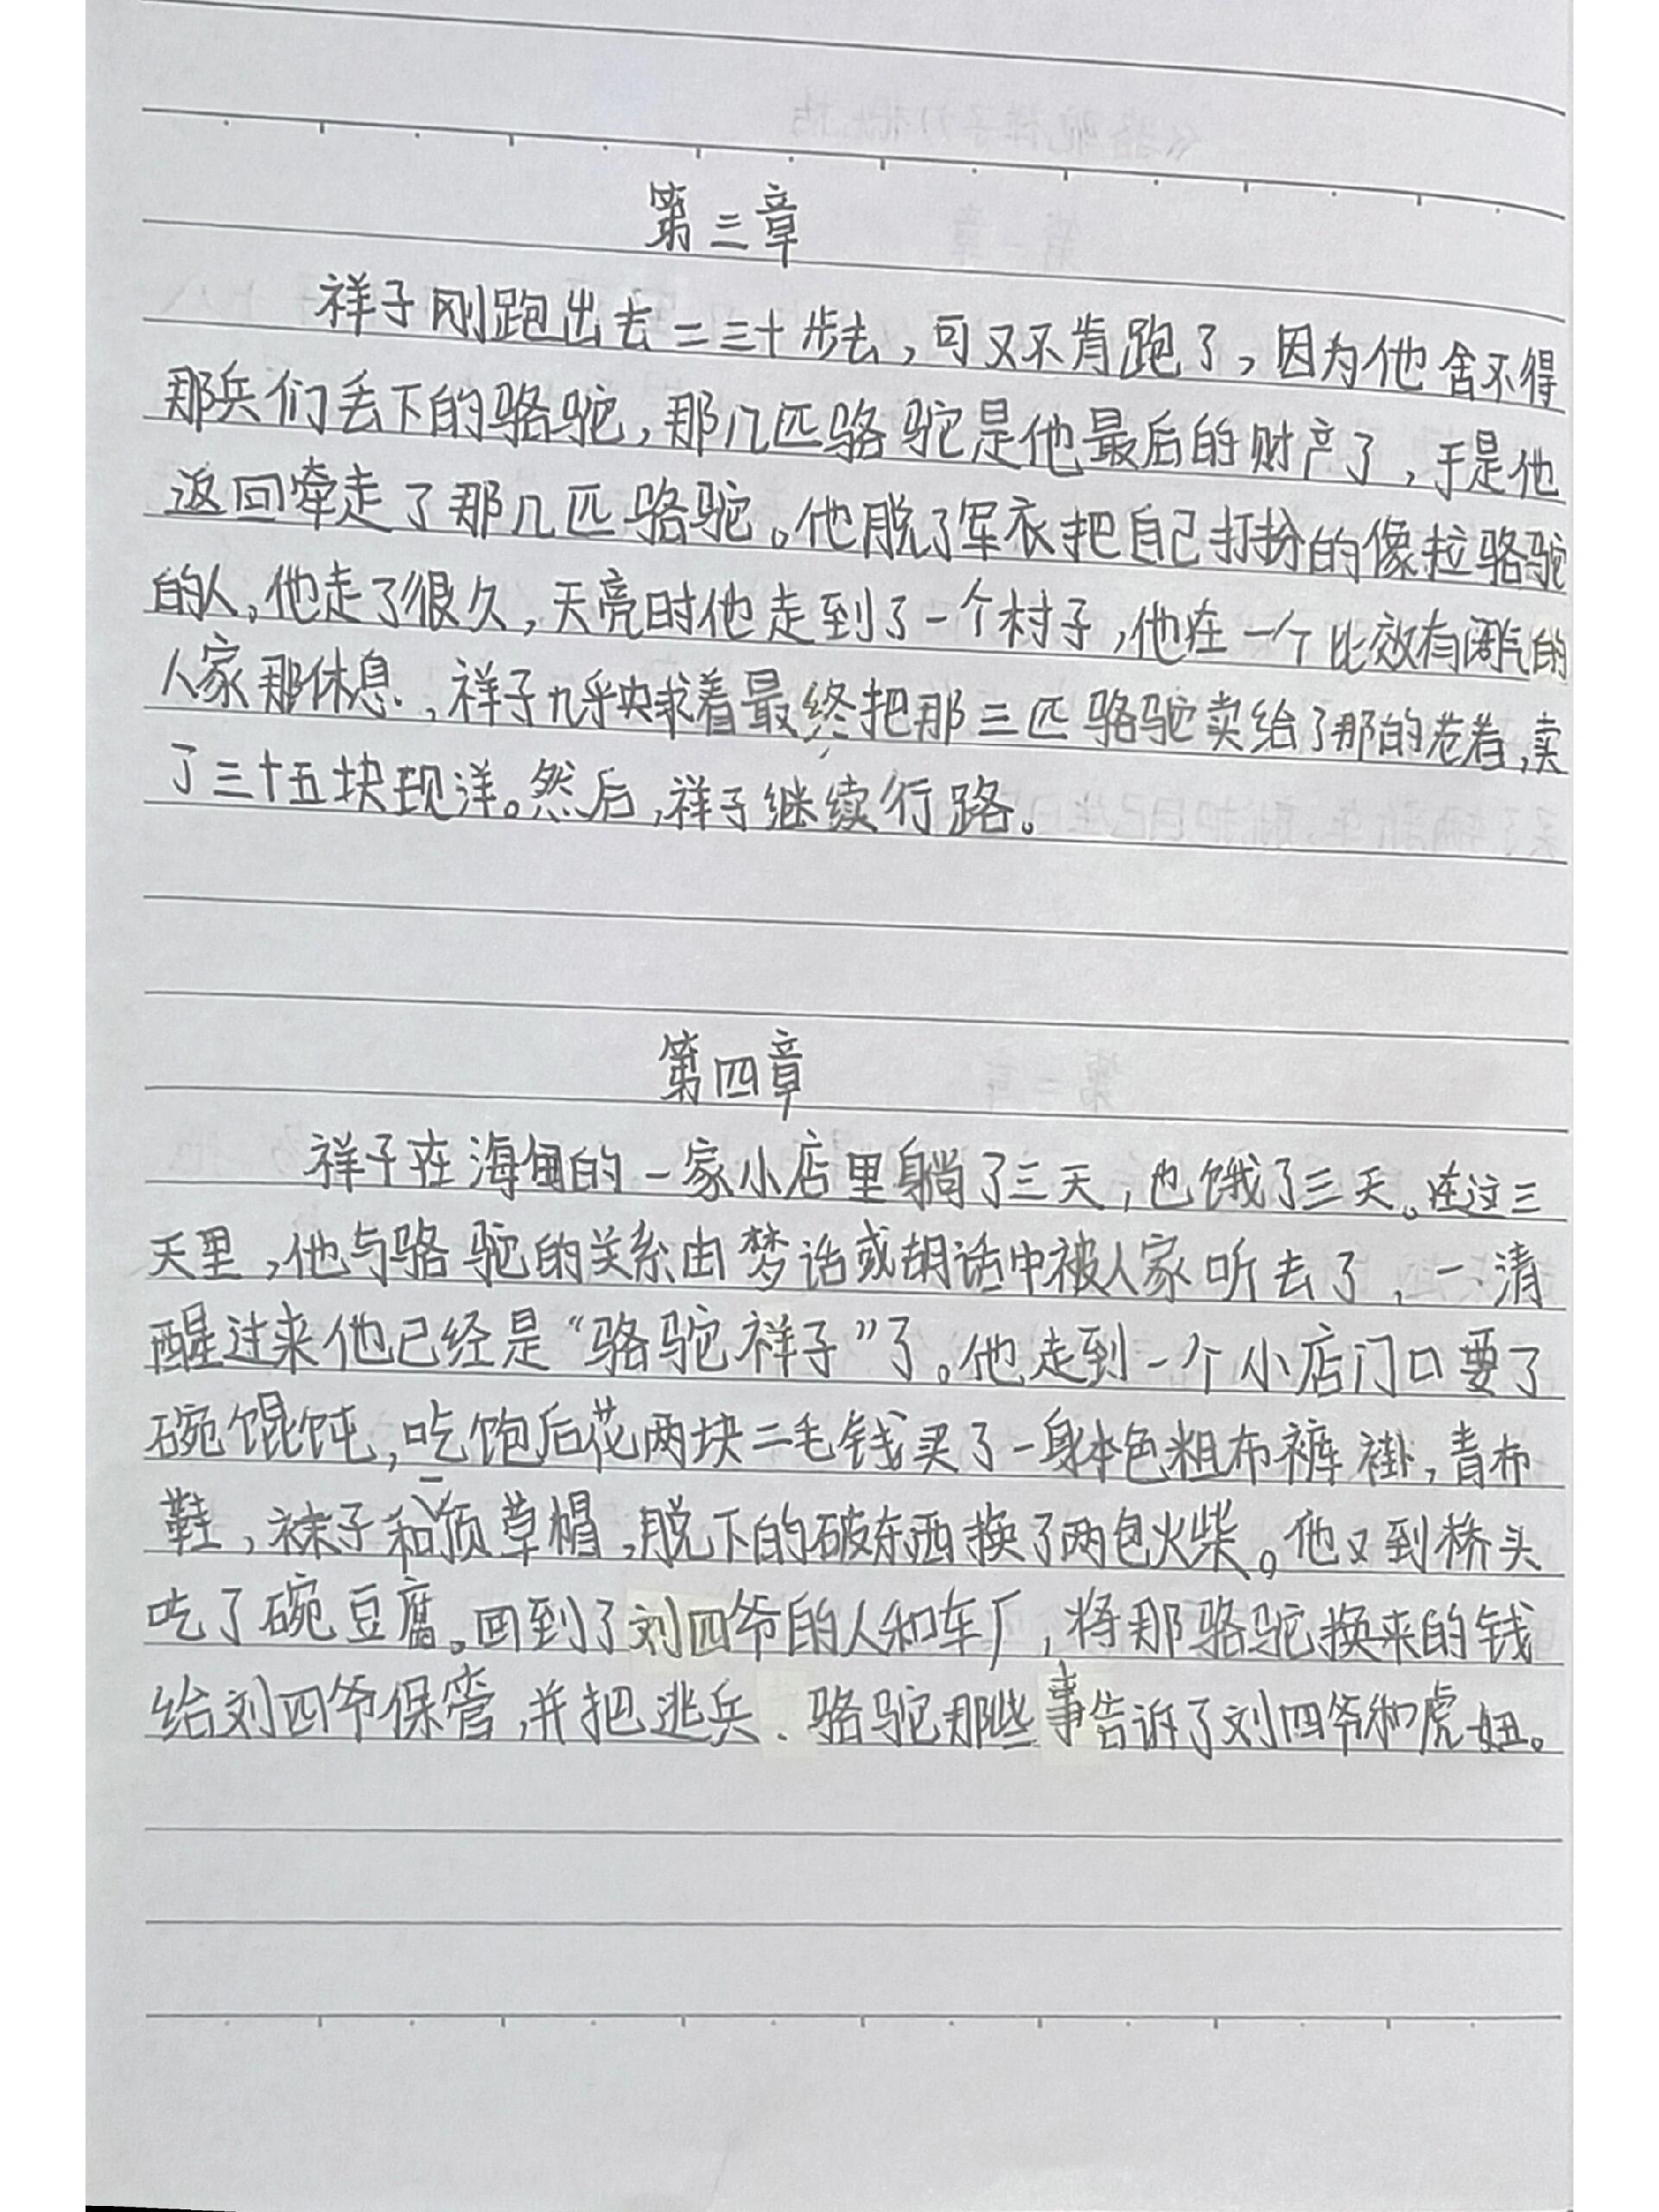 第三章
祥子刚跑出去二三十步去，可又不肯跑了，因为他舍不得
那兵们丢下的骆驼，那几匹骆驼是他最后的财产了，于是他
返回牵走了那几匹骆驼。他脱了军衣把自己打扮的像拉骆驼
的人，他走了很久，天亮时他走到了一个村子，他在一个比效有阔气的
人家那休息，祥子几乎央求着最终把那三匹骆驼卖给了那的老者，卖
了三十五块现洋。然后，祥子继续行路。
第四章
祥子在海甸的一家小店里躺了三天，也饿了三天。在这三
天里，他与骆驼的关系由梦话或胡话中被人家听去了，一清
醒过来他已经是“骆驼祥子”了。他走到一个小店门口要了
碗馄饨，吃饱后花两块二毛钱买了一身本色粗布裤褂，青布
鞋，袜子和一顶草帽，脱下的破东西换了两包火柴。他又到桥头
吃了碗豆腐。回到了刘四爷的人和车厂，将那骆驼换来的钱
给刘四爷保管，并把逃兵、骆驼那些事告诉了刘四爷和虎妞。